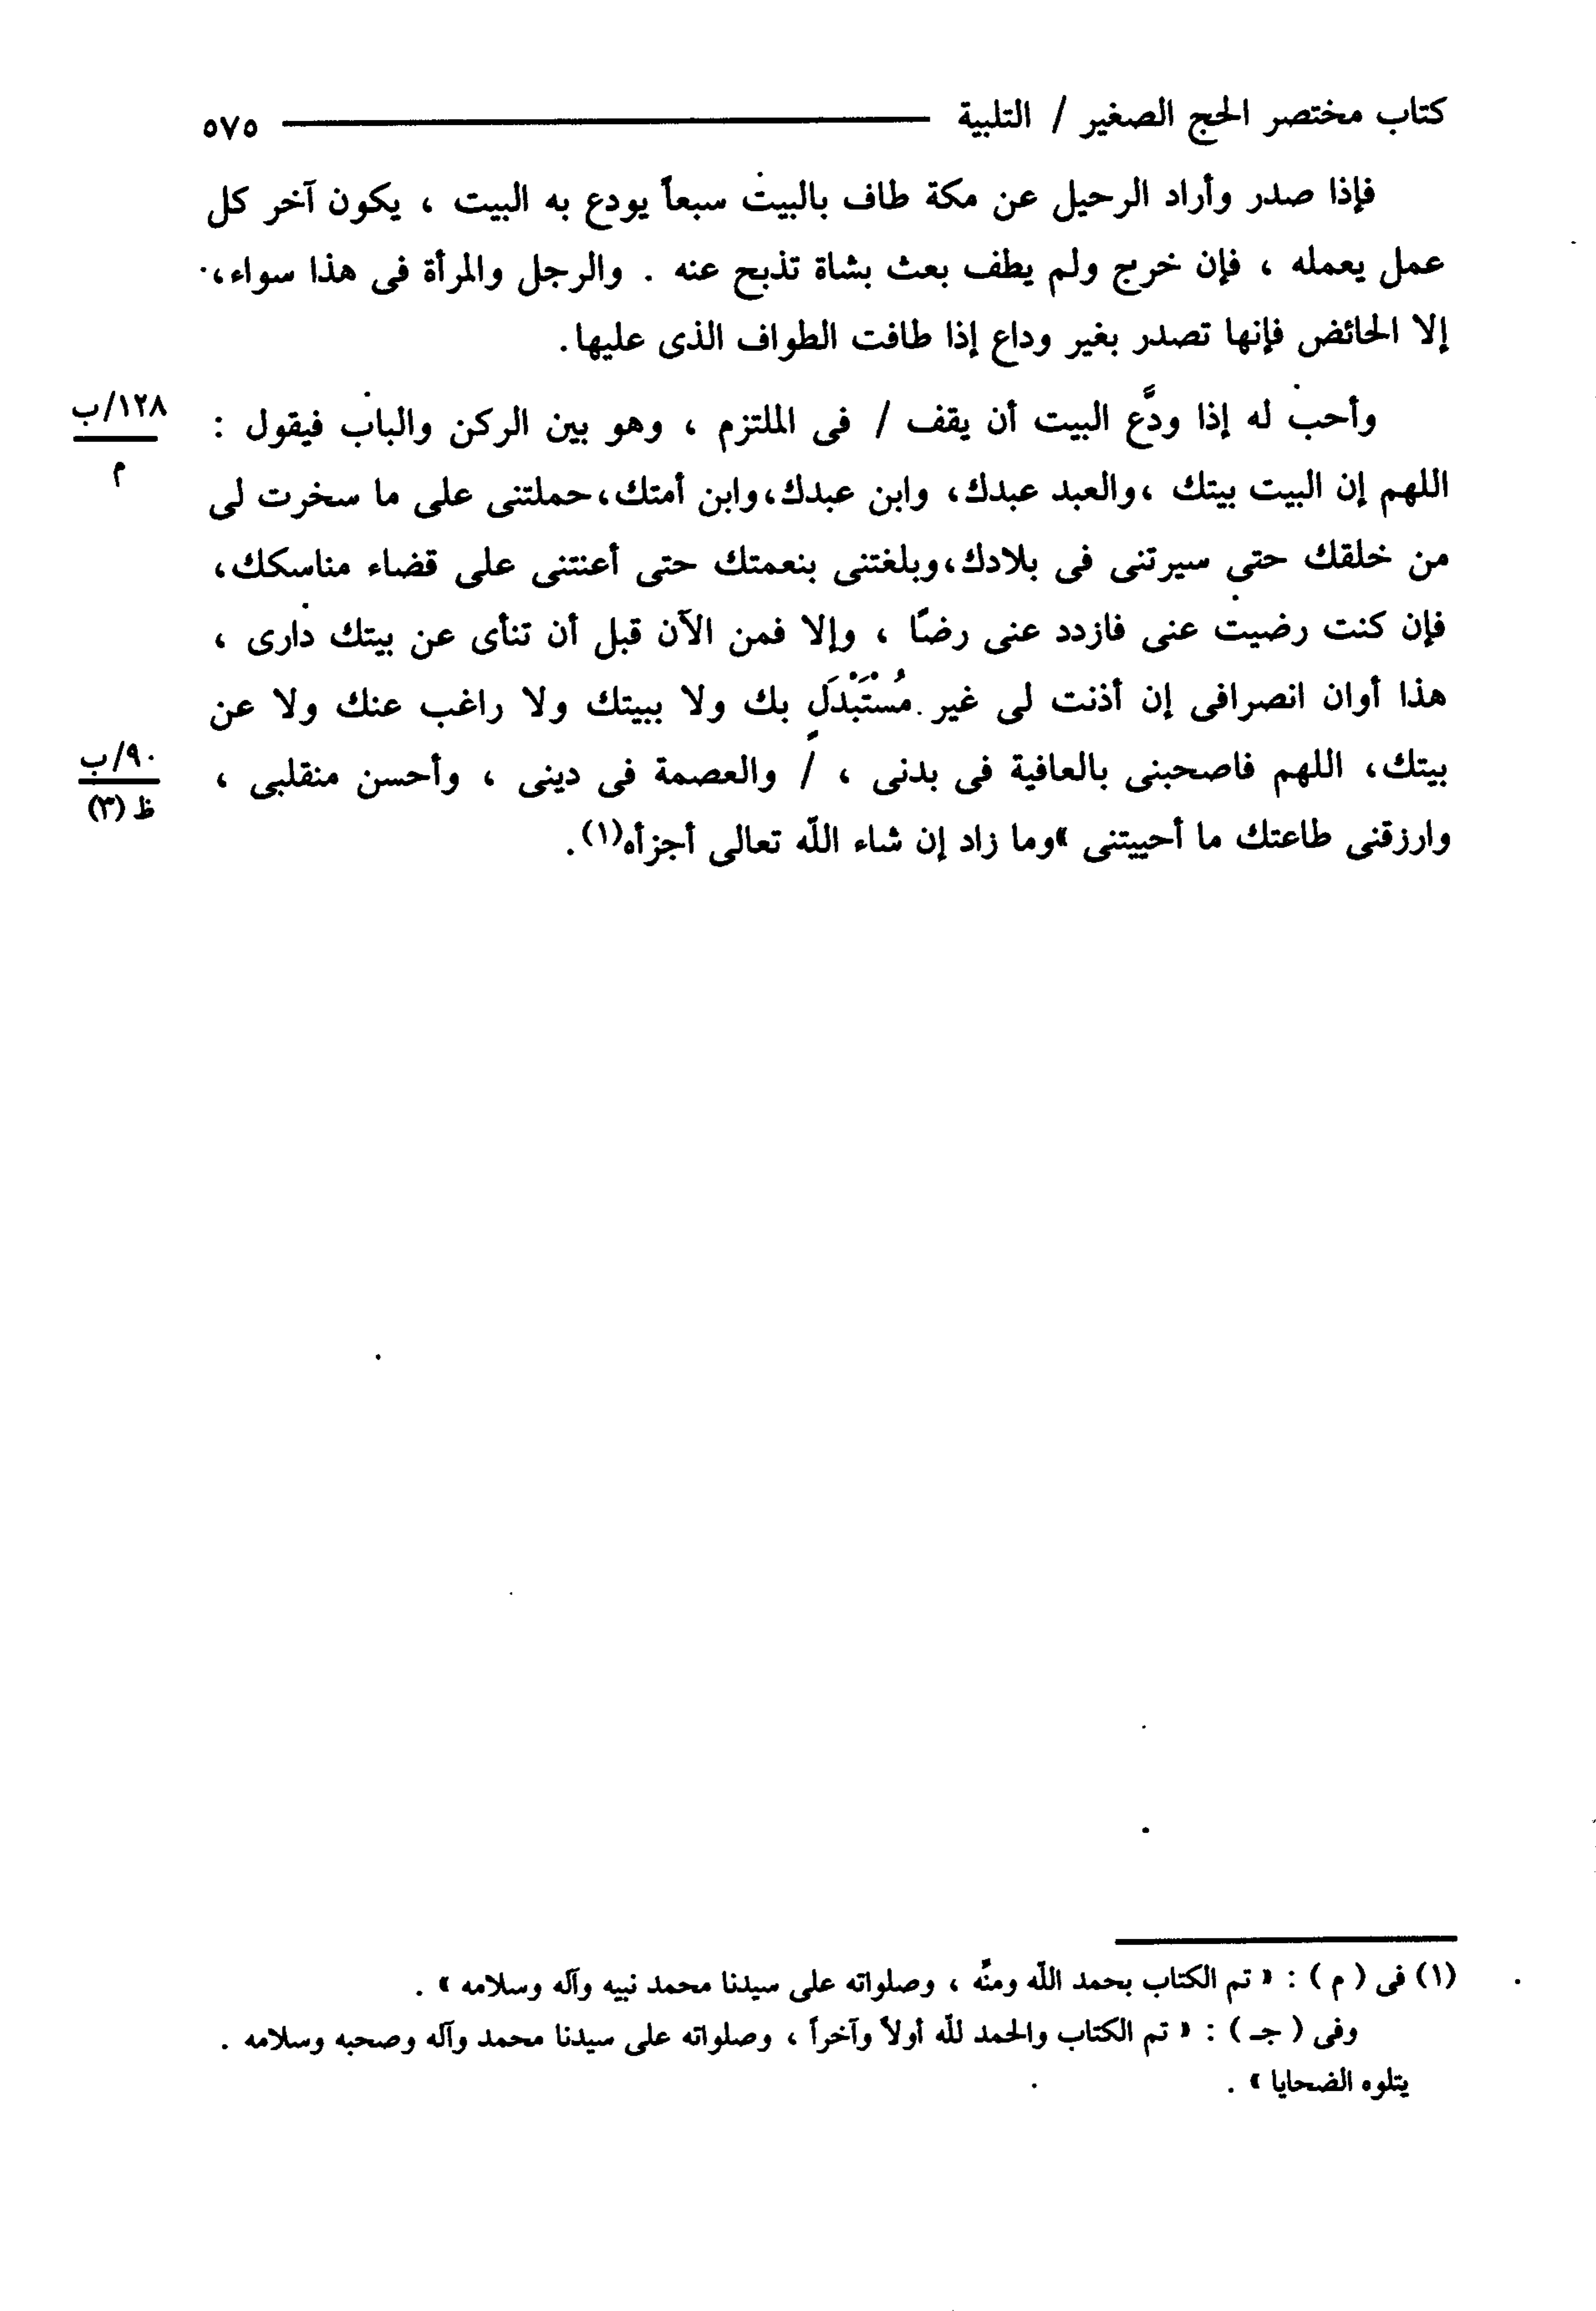 كتاب مختصر الحج الصغير / التلبية ٥٧٥
فإذا صدر وأراد الرحيل عن مكة طاف بالبيت سبعاً يودع به البيت ، يكون آخر كل
عمل يعمله ، فإن خرج ولم يطف بعث بشاة تذبح عنه . والرجل والمرأة فى هذا سواء،
إلا الحائض فإنها تصدر بغير وداع إذا طافت الطواف الذى عليها.
وأحب له إذا ودَّع البيت أن يقف / فى الملتزم ، وهو بين الركن والباب فيقول :
١٢٨/ب
م
اللهم إن البيت بيتك ،والعبد عبدك، وابن عبدك،وابن أمتك،حملتنى على ما سخرت لى
من خلقك حتى سيرتنى فى بلادك،وبلغتنى بنعمتك حتى أعنتنى على قضاء مناسكك،
فإن كنت رضيت عنى فازدد عنى رضًا ، وإلا فمن الآن قبل أن تنأى عن بيتك دارى ،
هذا أوان انصرافى إن أذنت لى غير مُسْتَبْدَلٍ بك ولا ببيتك ولا راغب عنك ولا عن
بيتك، اللهم فاصحبنى بالعافية فى بدنى ، / والعصمة فى دينى ، وأحسن منقلبى ،
٩٠/ب
ظ (٣)
وارزقنى طاعتك ما أحييتنى »وما زاد إن شاء اللّه تعالى أجزأه(١).
(١) فى ( م ) : « تم الكتاب بحمد اللّه ومنِّه ، وصلواته على سيدنا محمد نبيه وآله وسلامه » .
وفى ( جـ ) : « تم الكتاب والحمد للّه أولاً وآخراً ، وصلواته على سيدنا محمد وآله وصحبه وسلامه .
يتلوه الضحايا » .